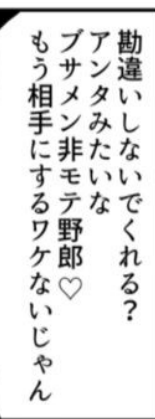 勘違いしないでくれる?
アンタみたいな
ブサメン非モテ野郎♡
もう相手にするワケないじゃん